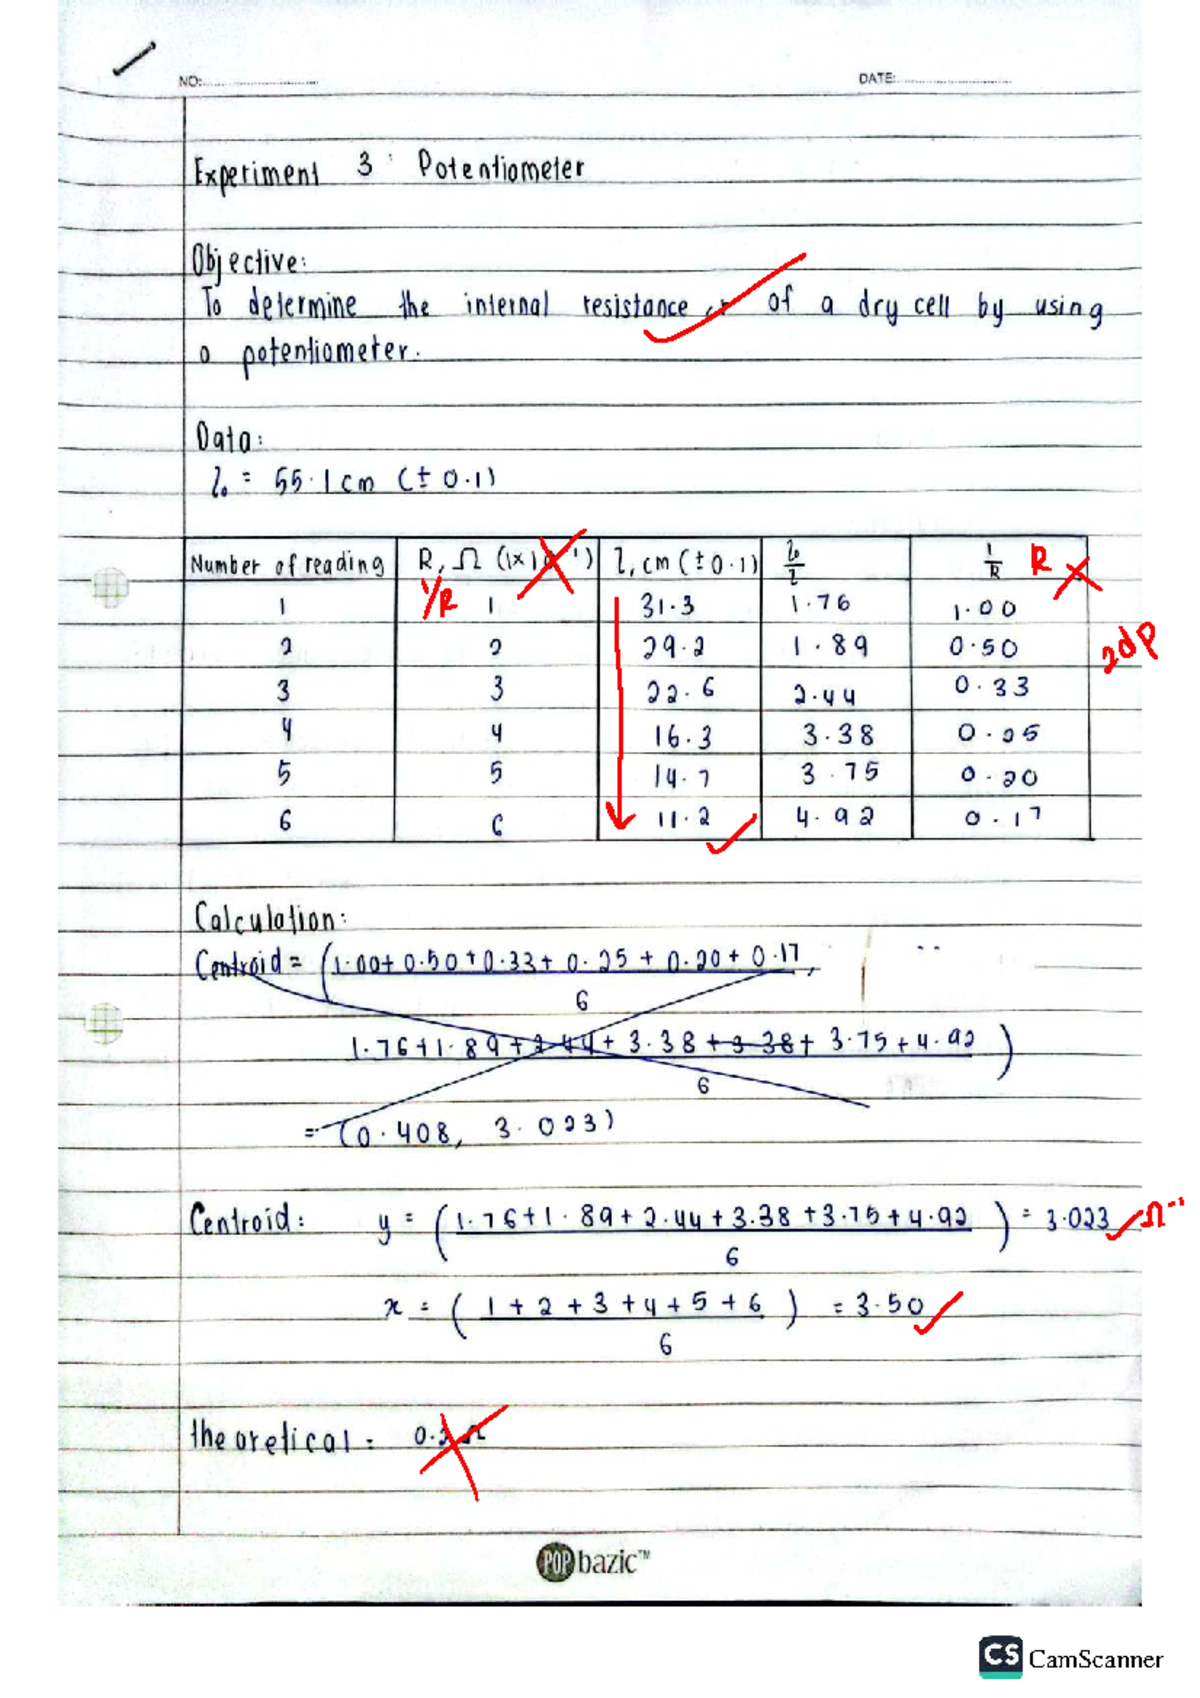 NO:
DATE:
Experiment 3 : Potentiometer
Objective:
To determine the internal resistance, r of a dry cell by using
a potentiometer.
Data:
l₀ = 55.1 cm (± 0.1)
Number of reading R, Ω l, cm (± 0.1) l₀/l 1/R R
1/R
1 1 31.3 1.76 1.00
2 2 29.2 1.89 0.50
2dp
3 3 22.6 2.44 0.33
4 4 16.3 3.38 0.25
5 5 14.7 3.75 0.20
6 6 11.2 4.92 0.17
Calculation:
Centroid = (1.00+ 0.50+0.33+ 0.25 + 0.20+ 0.17,
6
1.76+1.89+2.44+ 3.38 +3.38+ 3.75+4.92)
6
= (0.408, 3.023)
Centroid: y = (1.76+1.89+2.44+3.38+3.75+4.92) = 3.023 Ω
6
x = (1+2+3+4+5+6) = 3.50
6
theoretical =
POP bazic™
CS CamScanner